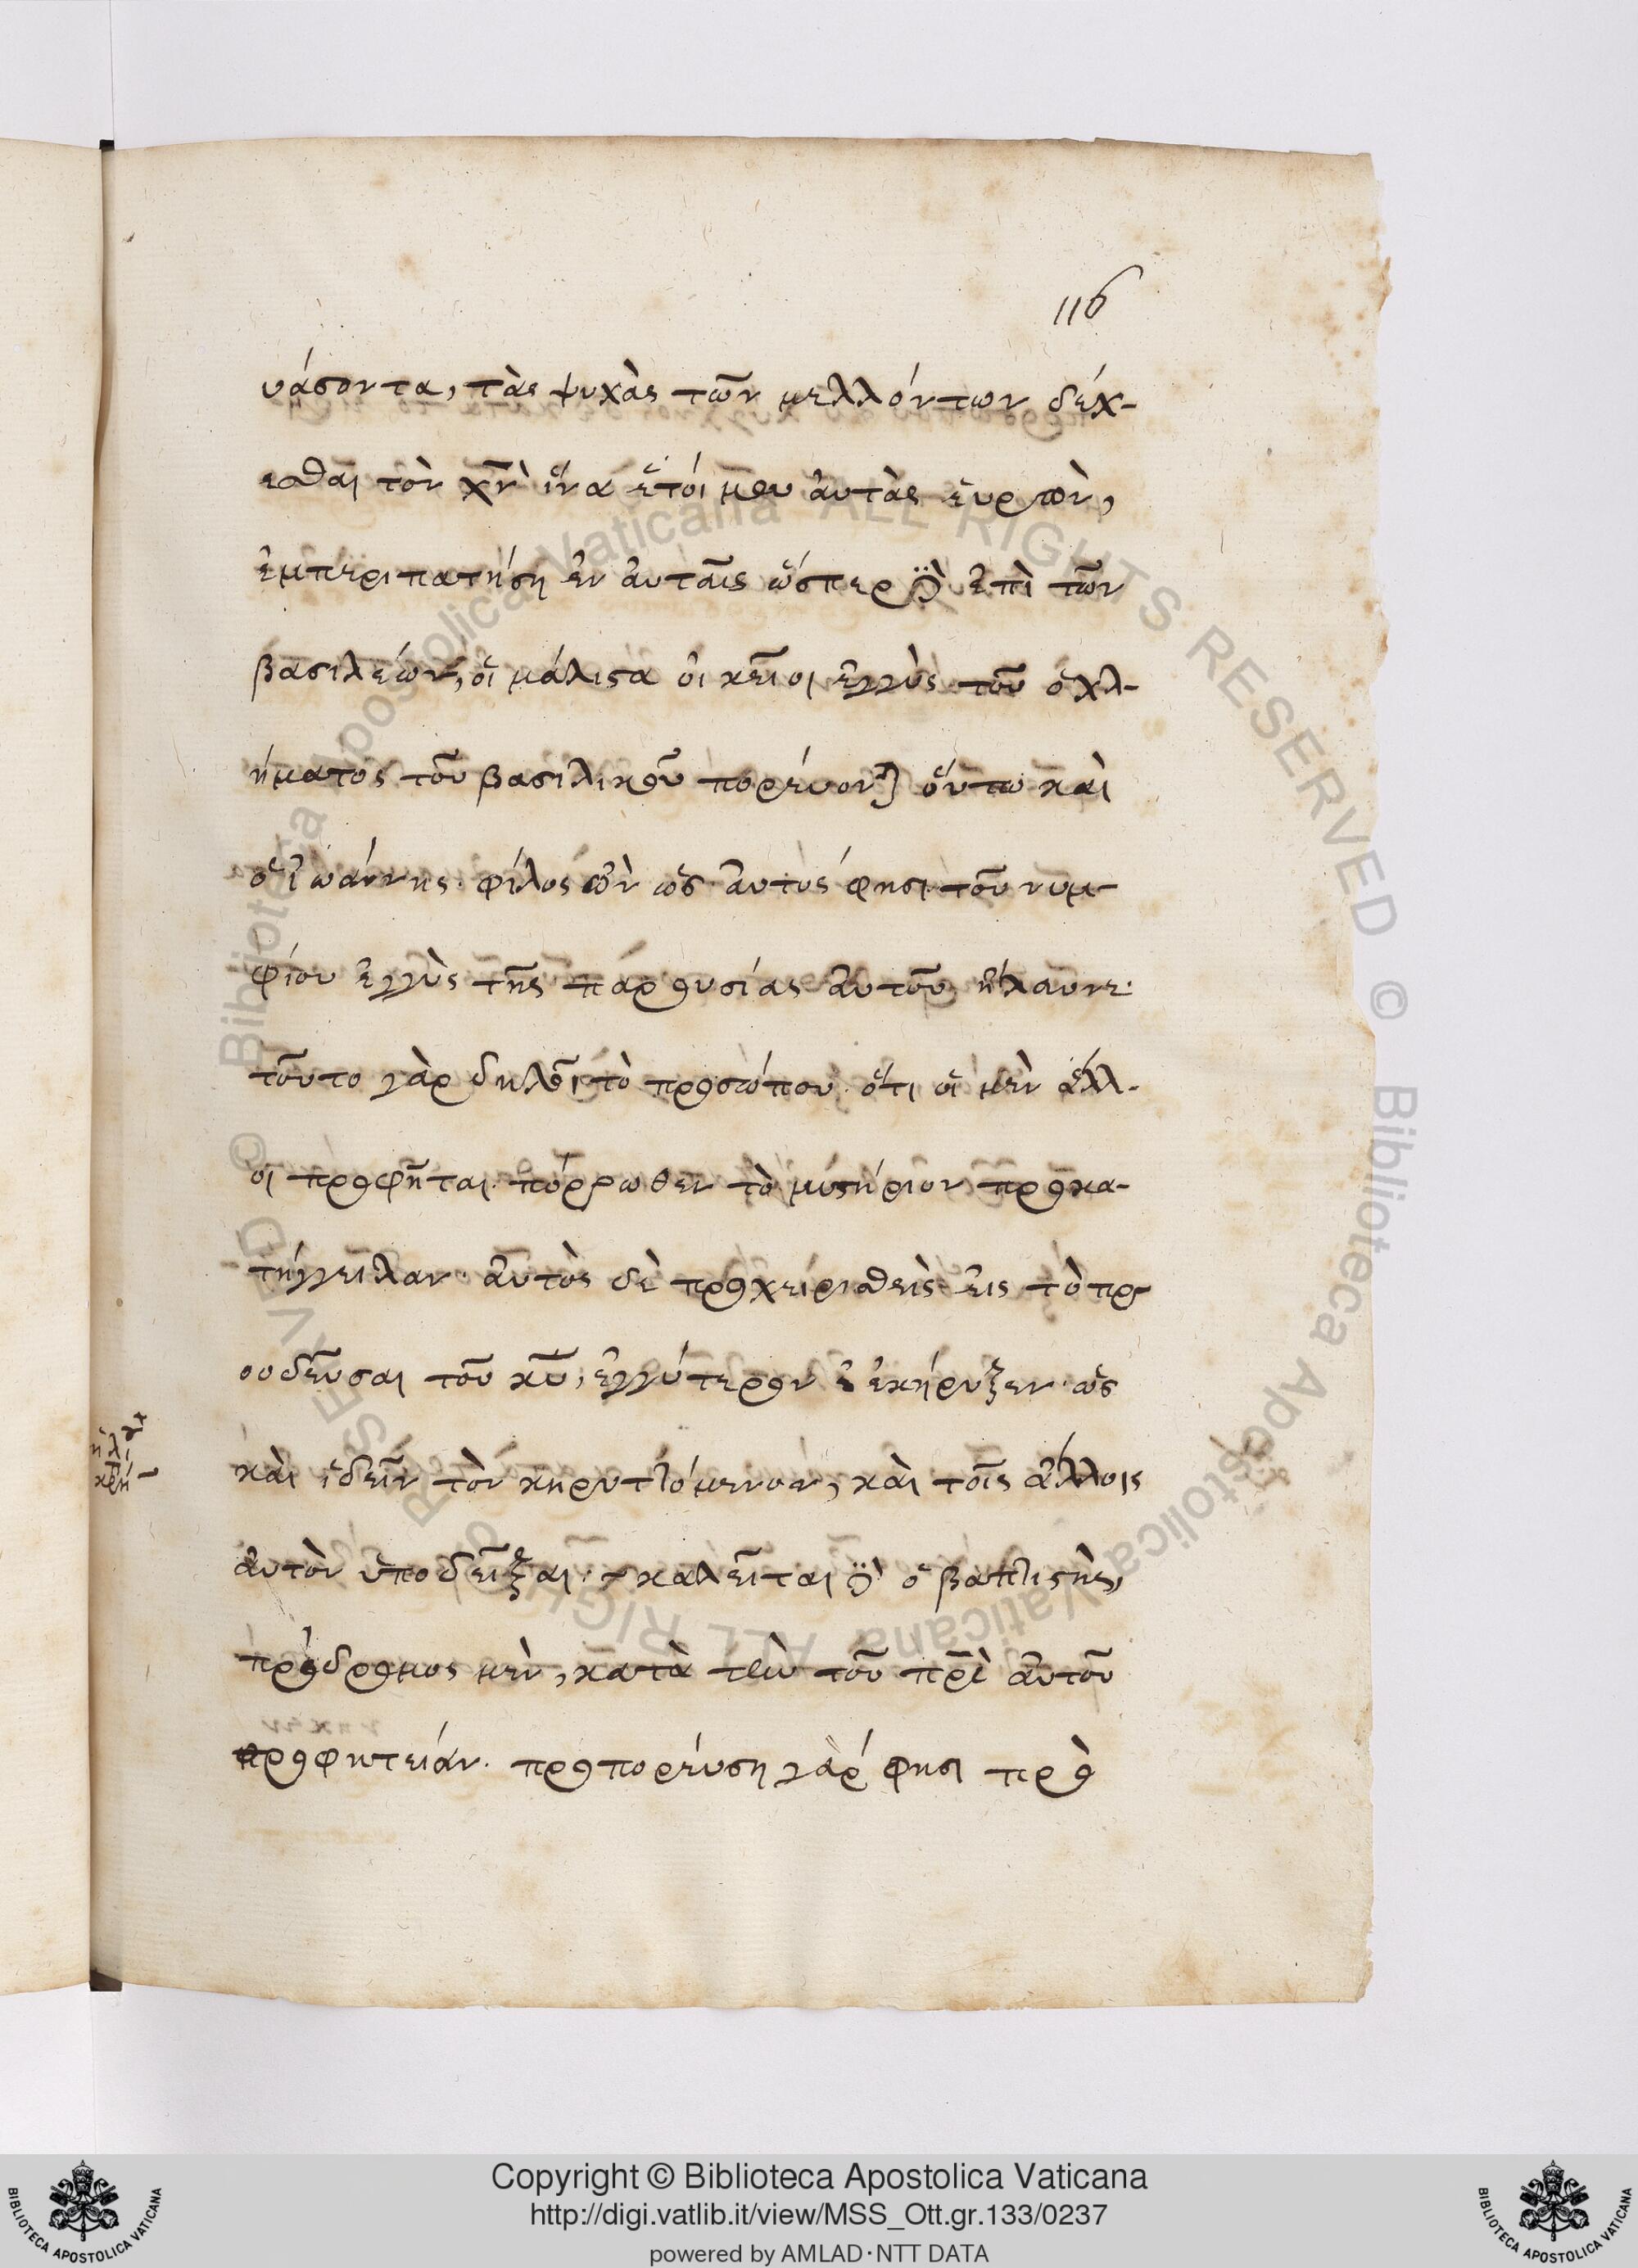 116
υάσοντα, τὰς ψυχὰς τῶν μελλόντων δέχ-
εσθαι τὸν χν̅ ἵνα ἑτοίμου αὐτὰς εὑρὼν,
ἐμπεριπατήση ἐν αὐταῖς ὥσπερ ἐπὶ τῶν
βασιλέων, οἱ μάλιστα οἰκεῖοι ἐγγὺς τοῦ ὀχλ-
ήματος τοῦ βασιλικοῦ πορεύον) οὕτω καὶ
ὁ ἰωάννης· φίλος ὢν ὡς αὐτός φησι τοῦ νυμ-
φίου ἐγγὺς τῆς παρουσίας αὐτοῦ ἤλαυνε·
τοῦτο γὰρ δηλοῖ τὸ προσώπου· ὅτι οἱ μὲν ἄλλ-
οι προφῆται· πόρρωθεν τὸ μυστήριον προκα-
τήγγειλαν· αὐτὸς δὲ προχειρισθεὶς εἰς τὸ πρ
οοδεῦσαι τοῦ κυ̅, ἐγγύτερον ἐκήρυξεν· ὡς
καὶ ἰδεῖν τὸν κηρυττόμενον, καὶ τοῖς ἄλλοις
αὐτὸν ὑποδεῖξαι· καλεῖται ὁ βαπτιστὴς,
πρόδρομος μὲν, κατὰ τὴν τοῦ πρ̅ς αὐτοῦ
προφητείαν· προπορεύση γάρ φησι πρὸ
Copyright © Biblioteca Apostolica Vaticana
http://digi.vatlib.it/view/MSS_Ott.gr.133/0237
powered by AMLAD·NTT DATA
BIBLIOTECA APOSTOLICA VATICANA
BIBLIOTECA APOSTOLICA VATICANA
© Biblioteca Apostolica Vaticana ALL RIGHTS RESERVED © Biblioteca Apostolica Vaticana ALL RIGHTS RESERVED